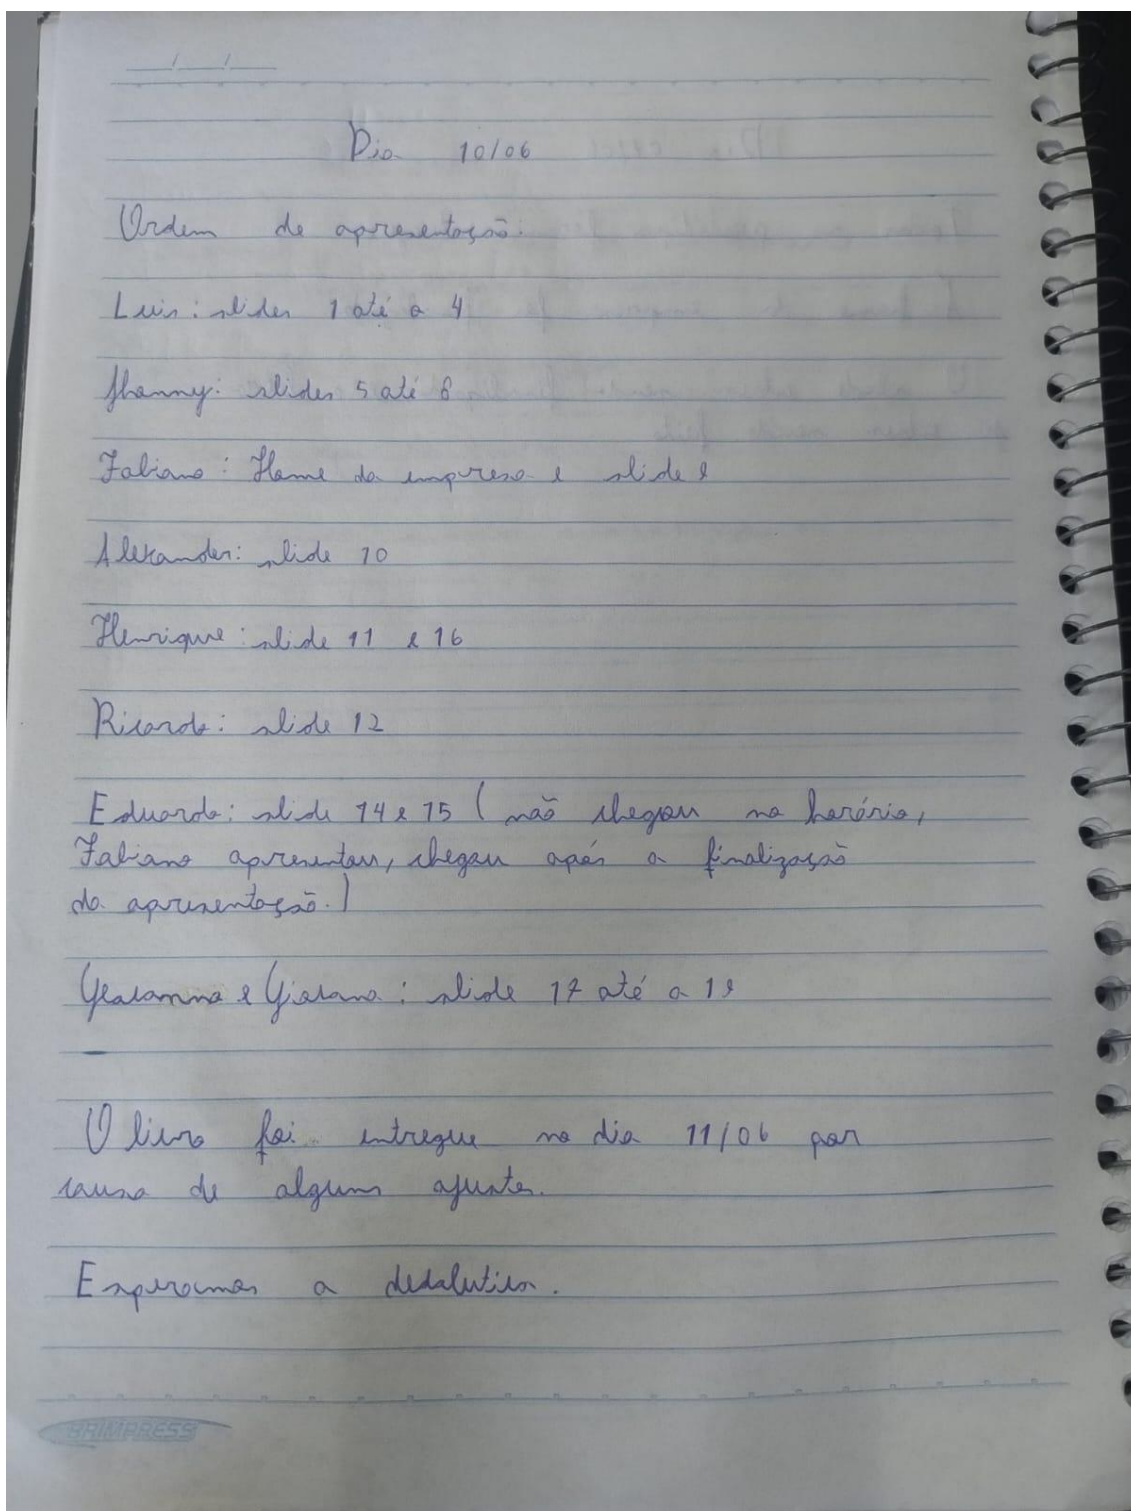 Dia 10/06
Ordem de apresentação:
Luis: slides 1 até o 4
Jhanny: slides 5 até 8
Fabiano: Home da empresa e slide 9
Alexander: slide 10
Henrique: slide 11 e 16
Ricardo: slide 12
Eduardo: slide 14 e 15 (não chegou no horário,
Fabiano apresentou, chegou após a finalização
da apresentação.)
e Giovana: slide 17 até o 19
O livro foi entregue no dia 11/06 por
causa de alguns ajustes.
Esperamos a
BRIMPRESS